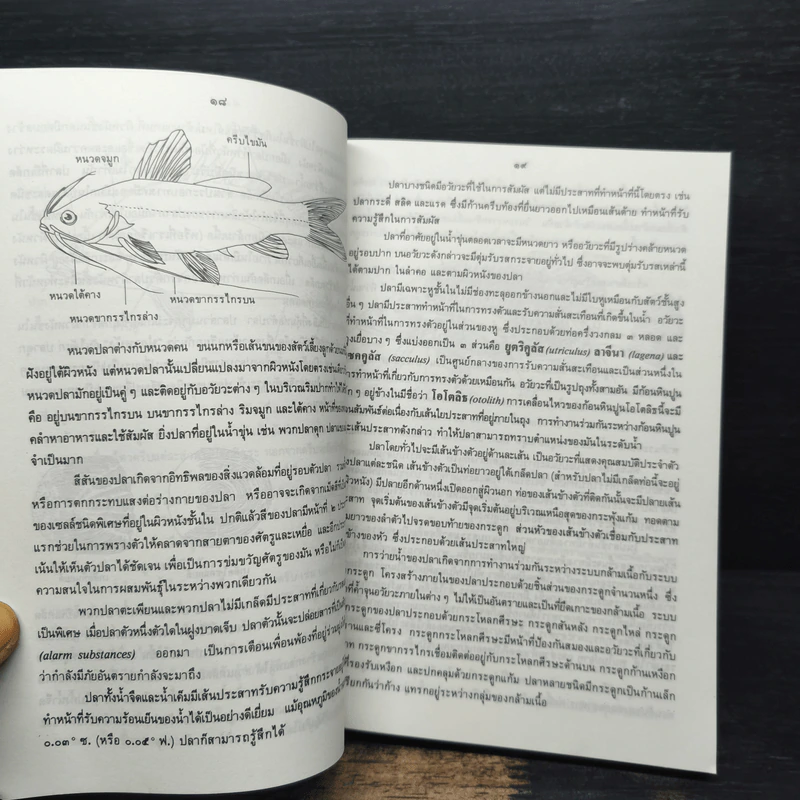 ๑๘
ครีบไขมัน
หนวดจมูก
หนวดใต้คาง
หนวดขากรรไกรบน
หนวดขากรรไกรล่าง
หนวดปลาต่างกับหนวดคน ขนนกหรือเส้นขนของสัตว์เลี้ยงลูกด้วยนม
ฝังอยู่ใต้ผิวหนัง แต่หนวดปลานั้นเปลี่ยนแปลงมาจากผิวหนังโดยตรง
หนวดปลามักอยู่เป็นคู่ ๆ และติดอยู่กับอวัยวะต่าง ๆ ในบริเวณริมปาก
คือ อยู่บนขากรรไกรบน บนขากรรไกรล่าง ริมจมูก และใต้คาง หน้าที่ของ
คลำหาอาหารและใช้สัมผัส ยิ่งปลาที่อยู่ในน้ำขุ่น เช่น พวกปลาดุก
จำเป็นมาก
สีสันของปลาเกิดจากอิทธิพลของสิ่งแวดล้อมที่อยู่รอบตัวปลา
หรือการตกกระทบแสงต่อร่างกายของปลา หรืออาจจะเกิดจากเม็ดสี
ของเซลล์ชนิดพิเศษที่อยู่ในผิวหนังชั้นใน ปกติแล้วสีของปลามีหน้าที่ ๒
แรกช่วยในการพรางตัวให้คลาดจากสายตาของศัตรูและเหยื่อ และอีก
เน้นให้เห็นตัวปลาได้ชัดเจน เพื่อเป็นการข่มขวัญศัตรูของมัน หรือ
ความสนใจในการผสมพันธุ์ในระหว่างพวกเดียวกัน
พวกปลาตะเพียนและพวกปลาไม่มีเกล็ดมีประสาทที่เกี่ยวกับ
เป็นพิเศษ เมื่อปลาตัวหนึ่งตัวใดในฝูงบาดเจ็บ ปลาตัวนั้นจะปล่อยสาร
(alarm substances) ออกมา เป็นการเตือนเพื่อนพ้องที่อยู่
ว่ากำลังมีภัยอันตรายกำลังจะมาถึง
ปลาทั้งน้ำจืดและน้ำเค็มมีเส้นประสาทรับความรู้สึกกระจาย
ทำหน้าที่รับความร้อนเย็นของน้ำได้เป็นอย่างดีเยี่ยม แม้อุณหภูมิของ
๐.๐๓° ซ. (หรือ ๐.๐๕° ฟ.) ปลาก็สามารถรู้สึกได้
๑๙
ปลาบางชนิดมีอวัยวะที่ใช้ในการสัมผัส แต่ไม่มีประสาทที่ทำหน้าที่นี้โดยตรง เช่น
ปลากระดี่ สลิด และแรด ซึ่งมีก้านครีบท้องที่ยื่นยาวออกไปเหมือนเส้นด้าย ทำหน้าที่รับ
ความรู้สึกในการสัมผัส
ปลาที่อาศัยอยู่ในน้ำขุ่นตลอดเวลาจะมีหนวดยาว หรืออวัยวะที่มีรูปร่างคล้ายหนวด
อยู่รอบปาก บนอวัยวะดังกล่าวจะมีตุ่มรับรสกระจายอยู่ทั่วไป ซึ่งอาจจะพบตุ่มรับรสเหล่านี้
ได้ตามปาก ในลำคอ และตามผิวหนังของปลา
ปลามีเฉพาะหูชั้นในไม่มีช่องทะลุออกข้างนอกและไม่มีใบหูเหมือนกับสัตว์ชั้นสูง
อื่น ๆ ปลามีประสาททำหน้าที่ในการทรงตัวและรับความสั่นสะเทือนที่เกิดขึ้นในน้ำ อวัยวะ
ที่ทำหน้าที่ในการทรงตัวอยู่ในส่วนของหู ซึ่งประกอบด้วยท่อครึ่งวงกลม ๓ หลอด และ
ถุงเยื่อบาง ๆ ซึ่งแบ่งออกเป็น ๓ ส่วนคือ ยูตริคูลัส (utriculus) ลาจีนา (lagena) และ
แซคคูลัส (sacculus) เป็นศูนย์กลางของการรับความสั่นสะเทือนและเป็นส่วนหนึ่งใน
การทำหน้าที่เกี่ยวกับการทรงตัวด้วยเหมือนกัน อวัยวะที่เป็นรูปถุงทั้งสามอัน มีก้อนหินปูน
ๆ อยู่ข้างในมีชื่อว่า โอโตลิธ (otolith) การเคลื่อนไหวของก้อนหินปูนโอโตลิธนี้จะมี
สัมพันธ์ต่อเนื่องกับเส้นใยประสาทที่อยู่ภายในถุง การทำงานร่วมกันระหว่างก้อนหินปูน
และเส้นประสาทดังกล่าว ทำให้ปลาสามารถทราบตำแหน่งของมันในระดับน้ำ
ปลาโดยทั่วไปจะมีเส้นข้างตัวอยู่ด้านละเส้น เป็นอวัยวะที่แสดงคุณสมบัติประจำตัว
ปลาแต่ละชนิด เส้นข้างตัวเป็นท่อยาวอยู่ใต้เกล็ดปลา (สำหรับปลาไม่มีเกล็ดท่อนี้จะอยู่
ผิวหนัง) มีปลายอีกด้านหนึ่งเปิดออกสู่ผิวนอก ท่อของเส้นข้างตัวที่ติดกันนั้นจะมีปลายเส้น
ประสาท จุดเริ่มต้นของเส้นข้างตัวมีจุดเริ่มต้นอยู่บริเวณเหนือสุดของกระพุ้งแก้ม ทอดตาม
ความยาวของลำตัวไปจรดขอบท้ายของกระดูก ส่วนหัวของเส้นข้างตัวเชื่อมกับประสาท
ข้างของหัว ซึ่งประกอบด้วยเส้นประสาทใหญ่
การว่ายน้ำของปลาเกิดจากการทำงานร่วมกันระหว่างระบบกล้ามเนื้อกับระบบ
กระดูก โครงสร้างภายในของปลาประกอบด้วยชิ้นส่วนของกระดูกจำนวนหนึ่ง ซึ่ง
ที่ค้ำจุนอวัยวะภายในต่าง ๆ ไม่ให้เป็นอันตรายและเป็นที่ยึดเกาะของกล้ามเนื้อ ระบบ
กระดูกของปลาประกอบด้วยกระดูกกระโหลกศีรษะ กระดูกสันหลัง กระดูกไหล่ กระดูก
และซี่โครง กระดูกกระโหลกศีรษะมีหน้าที่ป้องกันสมองและอวัยวะที่เกี่ยวกับ
กระดูกขากรรไกรเชื่อมติดต่ออยู่กับกระโหลกศีรษะด้านบน กระดูกก้านเหงือก
รองรับเหงือก และปกคลุมด้วยกระดูกแก้ม ปลาหลายชนิดมีกระดูกเป็นก้านเล็ก
เรียกกันว่าก้าง แทรกอยู่ระหว่างกลุ่มของกล้ามเนื้อ